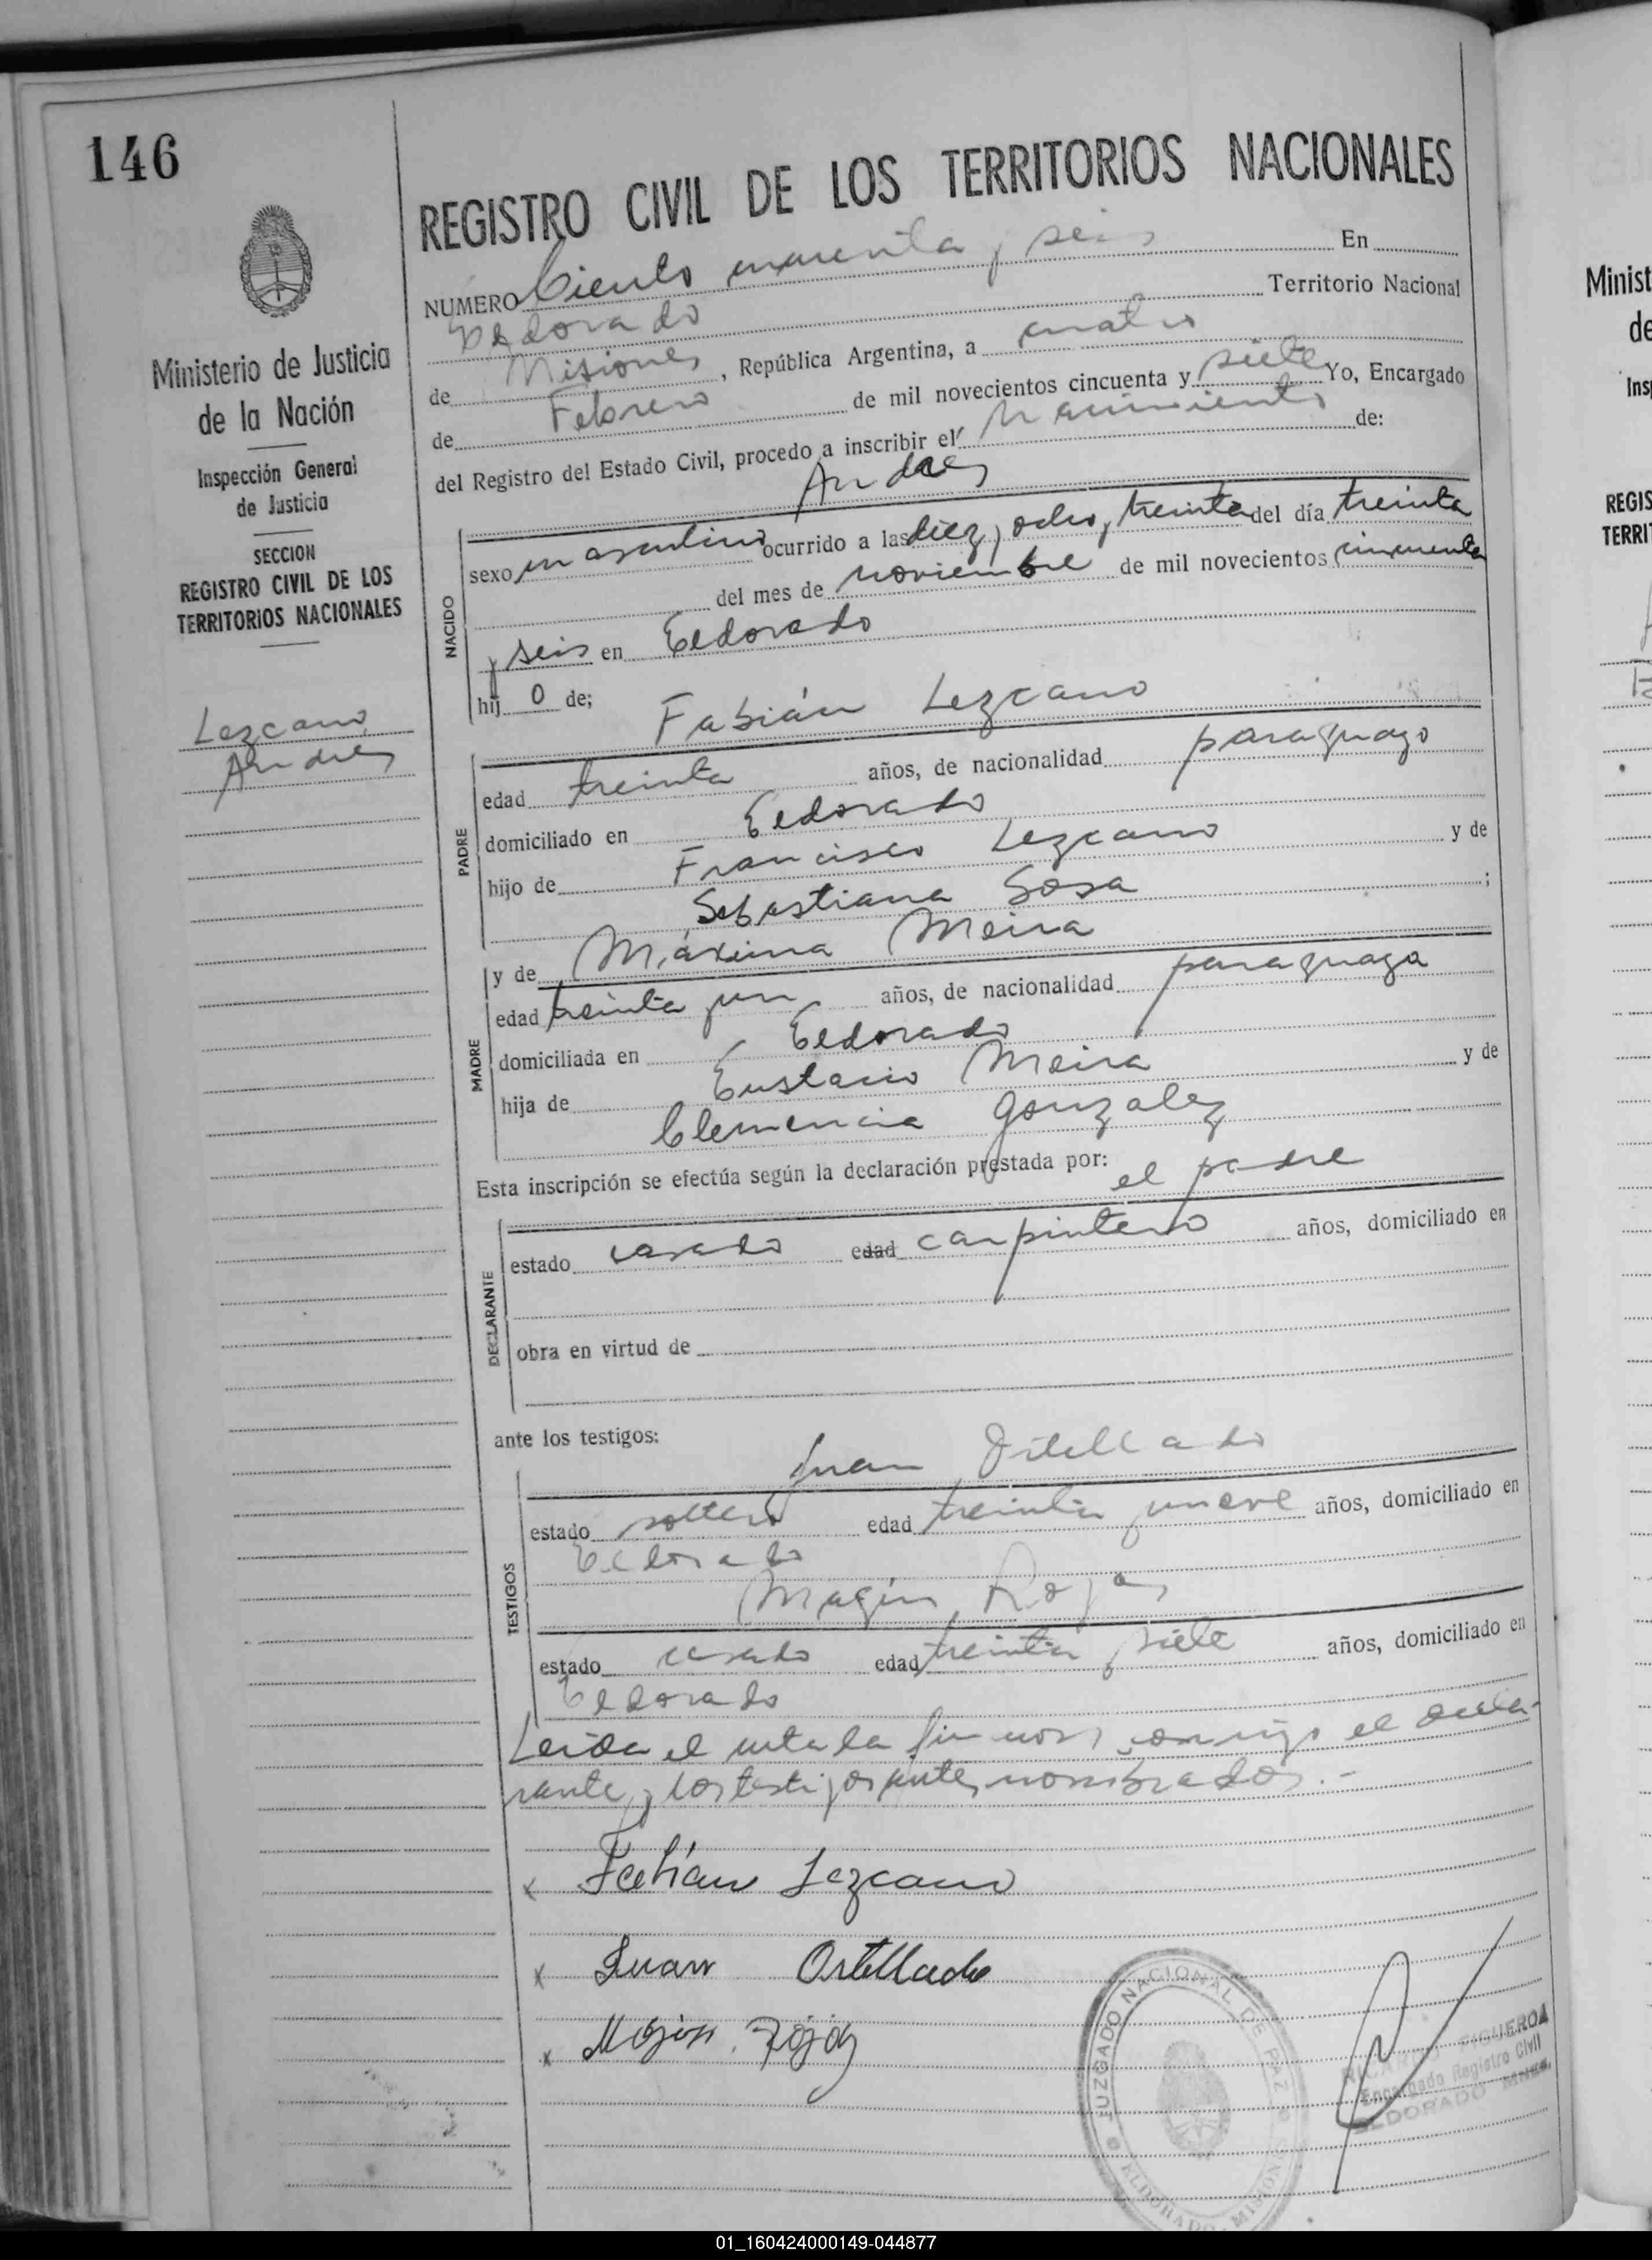 146
REGISTRO CIVIL DE LOS TERRITORIOS NACIONALES
Ministerio de Justicia
de la Nación
Inspección General
de Justicia
SECCION
REGISTRO CIVIL DE LOS
TERRITORIOS NACIONALES
Lezcano
Andres
NUMERO Ciento cuarenta y seis En
Eldorado Territorio Nacional
de Misiones, República Argentina, a cuatro
de Febrero de mil novecientos cincuenta y siete Yo, Encargado
del Registro del Estado Civil, procedo a inscribir el Nacimiento de:
Andres
NACIDO
sexo masculino ocurrido a las diez y ocho y treinta del día treinta
del mes de noviembre de mil novecientos cincuenta
y seis en Eldorado
hij o de;
Fabián Lezcano
PADRE
edad treinta años, de nacionalidad paraguayo
domiciliado en Eldorado
hijo de Francisco Lezcano y de
Sebastiana Sosa ;
y de Máxima Meira
MADRE
edad treinta y un años, de nacionalidad paraguaya
domiciliada en Eldorado
hija de Eustacio Meira y de
Clemencia Gonzalez
Esta inscripción se efectúa según la declaración prestada por:
el padre
DECLARANTE
estado casado edad carpintero años, domiciliado en
obra en virtud de
ante los testigos:
Juan Ortellado
TESTIGOS
estado soltero edad treinta y nueve años, domiciliado en
Eldorado
Magin Rojas
estado casado edad treinta y siete años, domiciliado en
Eldorado
Leida el acta la firmaron conmigo el decla-
rante y los testigos antes nombrados.-
x Fabian Lezcano
x Juan Ortellado
x Magin Rojas
JUZGADO NACIONAL DE PAZ
ELDORADO - MISIONES
RICARDO FIGUEROA
Encargado Registro Civil
ELDORADO MNES.
Minist
de
Insp
REGIS
TERRI
01_160424000149-044877